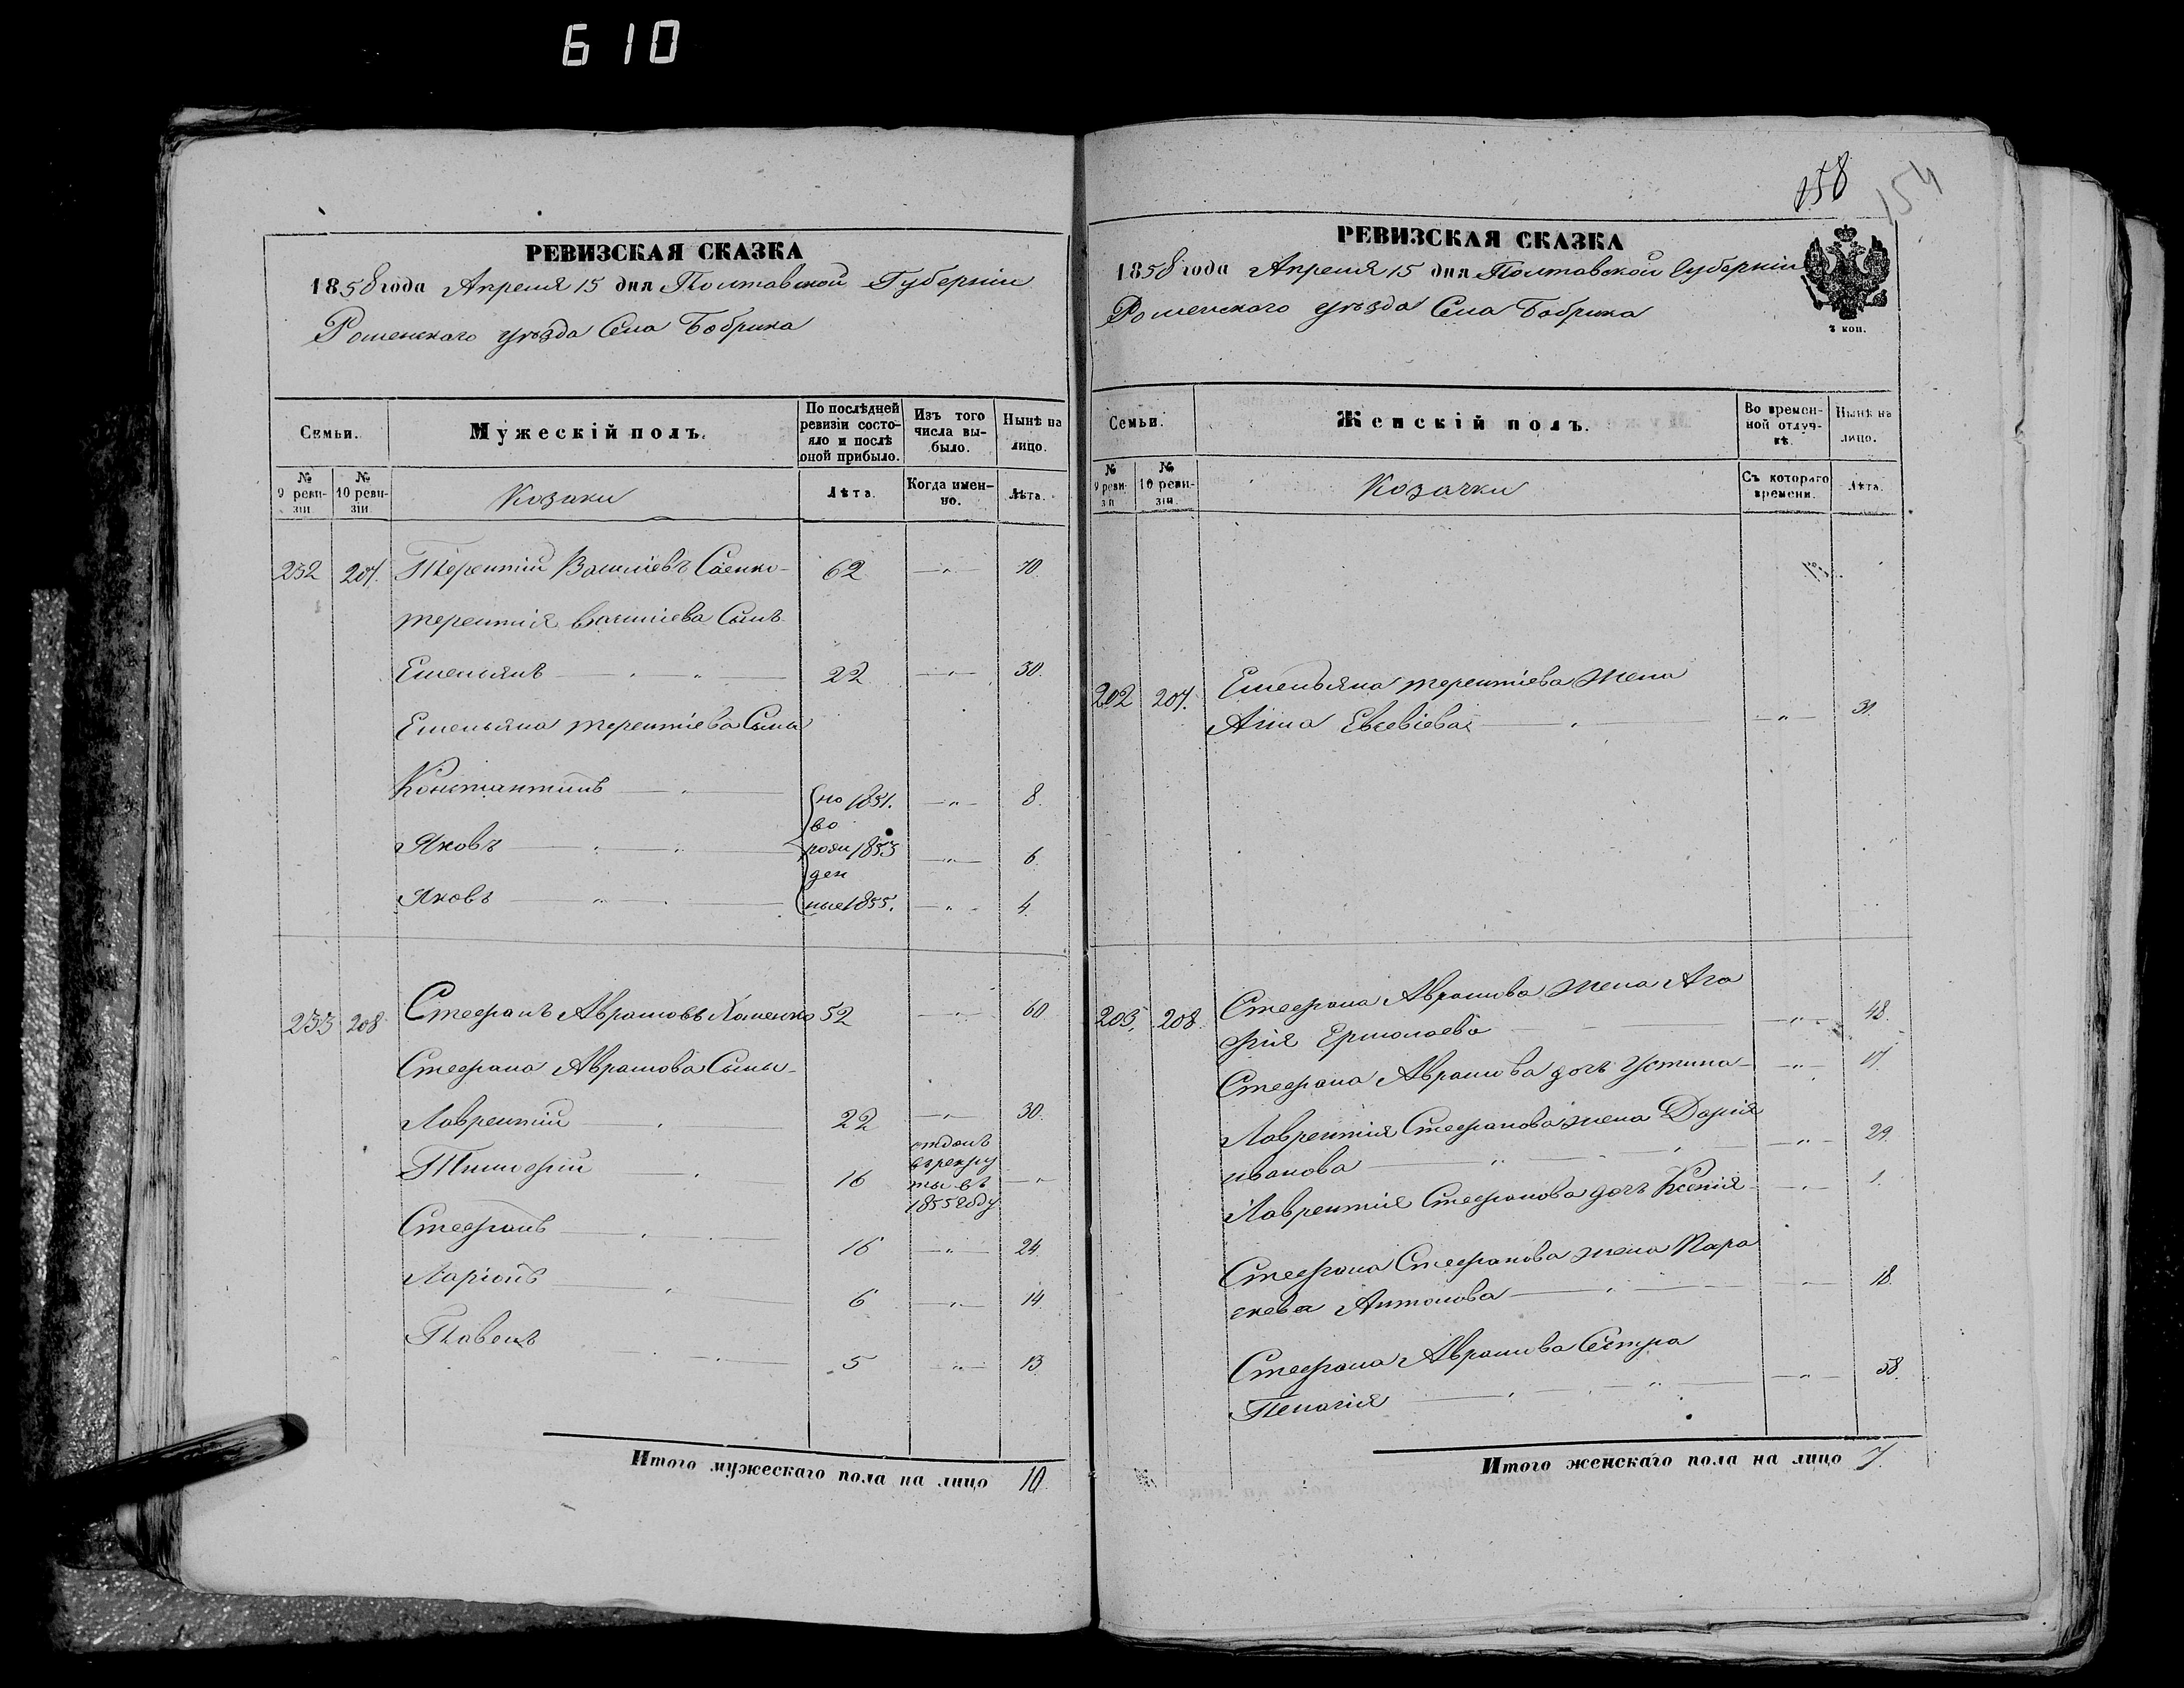 610
РЕВИЗСКАЯ СКАЗКА
1858 года Апреля 15 дня Полтавской Губерніи
Роменского уѣзда Села Бобрика
Семьи.
Мужескій полъ.
По послѣдней ревизіи состояло и послѣ оной прибыло.
Изъ того числа выбыло.
Нынѣ на лицо.
№ 9 ревизіи
№ 10 ревизіи
Козаки
Лѣта.
Когда именно.
Лѣта.
232 207. Терентій Василіевъ Саенко 62 — " — 70.
Терентія Василіева Сынъ
Емельянъ — " — 22 — " — 30.
Емельяна Терентіева Сыны
Константинъ — " — но 1851. — " — 8.
во
Яковъ — " — рож 1853 — " — 6.
ден
Яковъ — " — ные 1855. — " — 4.
233 208 Стефанъ Аврамовъ Хоменко 52 — " — 60
Стефана Аврамова Сыны
Лаврентій — " — 22 — " — 30.
Тимофій — " — 16 отданъ
в рекру
ты въ — " —
1855 году
Стефанъ — " — 16 — " — 24.
Ларіонъ — " — 6 — " — 14.
Павелъ — " — 5 — " — 13.
Итого мужескаго пола на лицо 10.
158
154
РЕВИЗСКАЯ СКАЗКА
1858 года Апреля 15 дня Полтавской Губерніи
Роменского уѣзда Села Бобрика
Семьи.
Женскій полъ.
Во временной отлучкѣ.
Нынѣ на лицо.
№ 9 ревизіи
№ 10 ревизіи.
Козачки
Съ котораго времени.
Лѣта.
202 207. Емельяна Терентіева жена
Анна Евсевіева — " — 31.
203. 208. Стефана Аврамова жена Ага
фія Ермолаева — " — 48.
Стефана Аврамова дочь Устина — " — 17.
Лаврентія Стефанова жена Дарія
иванова — " — 29.
Лаврентія Стефанова дочь Ксенія — " — 1.
Стефана Стефанова жена Пара
скева Антонова — " — 18.
Стефана Аврамова Сестра
Пелагія — " — 58.
Итого женскаго пола на лицо 7.